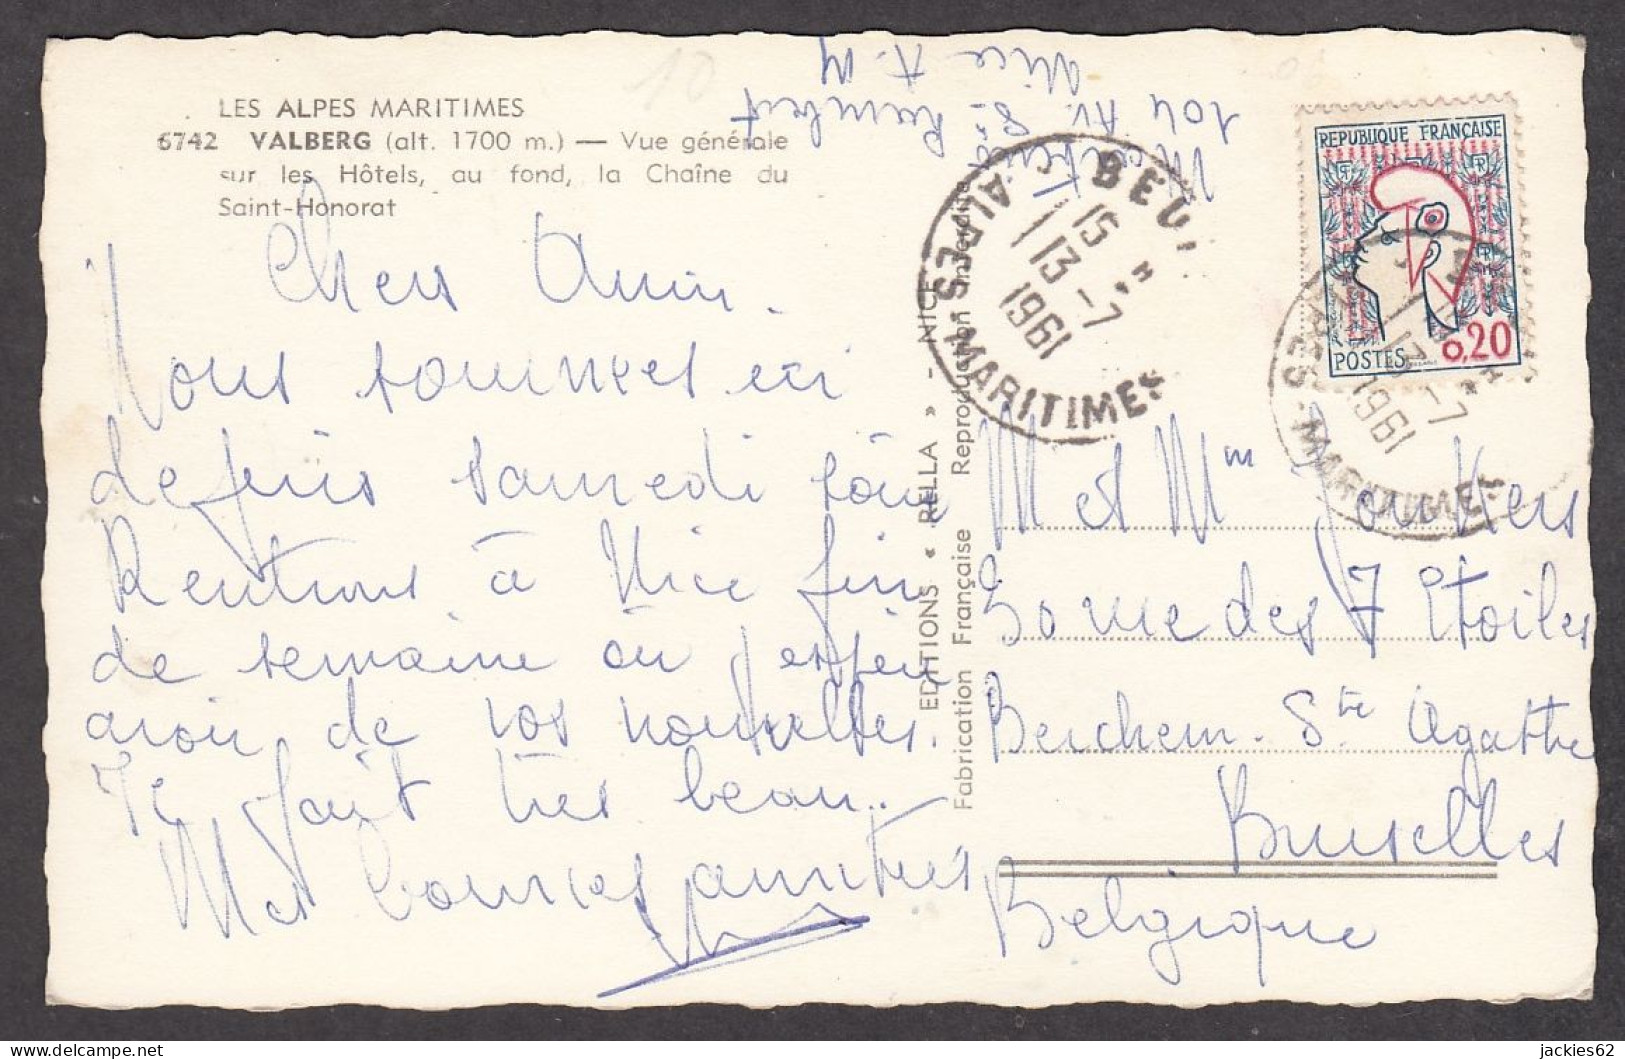 LES ALPES MARITIMES
6742 VALBERG (alt. 1700 m.) — Vue générale
sur les Hôtels, au fond, la Chaîne du
Saint-Honorat
10
Chers Amis.
Nous sommes ici
depuis samedi soir
Rentrons à Nice fin
de semaine où j'espère
avoir de vos nouvelles.
Il fait très beau..
Mes bonnes amitiés
104 Av. St Lambert
Nice A.M
EDITIONS « RELLA » - NICE
Fabrication Française Reproduction interdite
BEUI
15 H
13-7
1961
ALPES MARITIMES
REPUBLIQUE FRANÇAISE
RF
RF
POSTES
0,20
15 H
13-7
1961
MARITIMES
M et Mme Jonkers
des 7 Etoiles
Berchem. Ste Agathe
Bruxelles
Belgique
jackies62